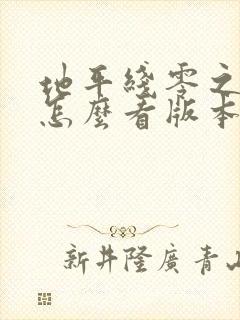 地平綫零之
怎麼看版本
新井隆廣青山